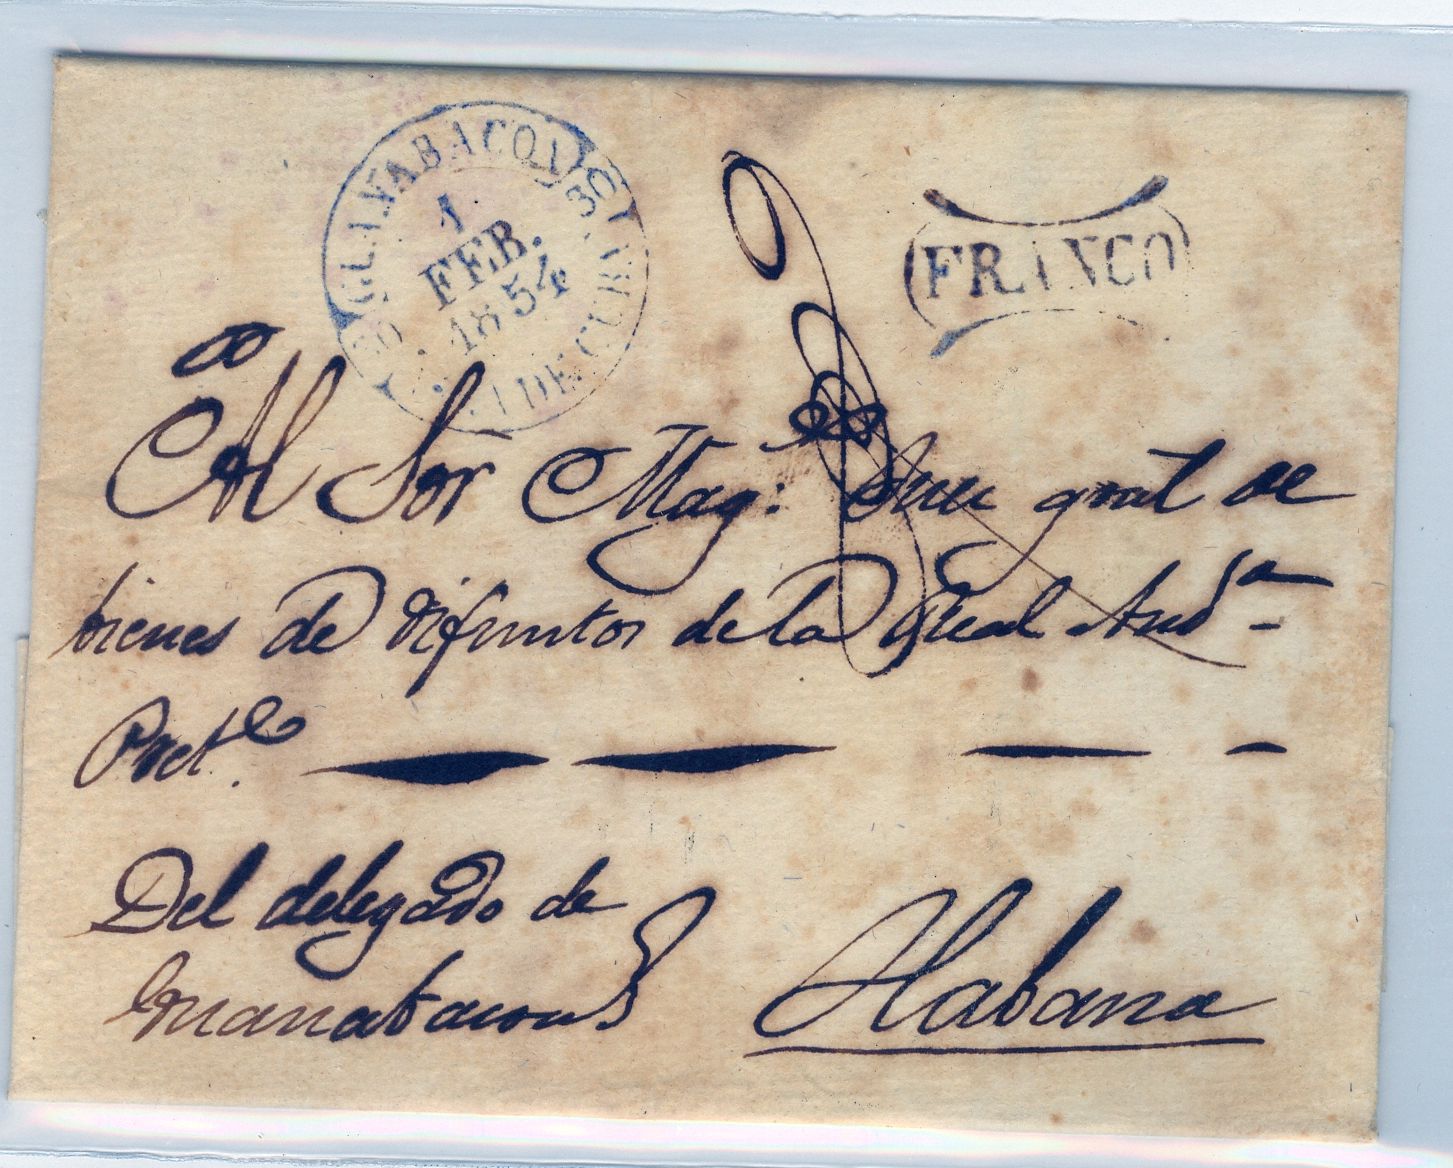 GUANABACOA
1
FEB.
1854
DE CUBA
FRANCO
Al Sor Mag. Juez gral de
bienes de difuntos de la Real Aud.a
Pret.l
Del delegado de
Guanabacoa
Habana